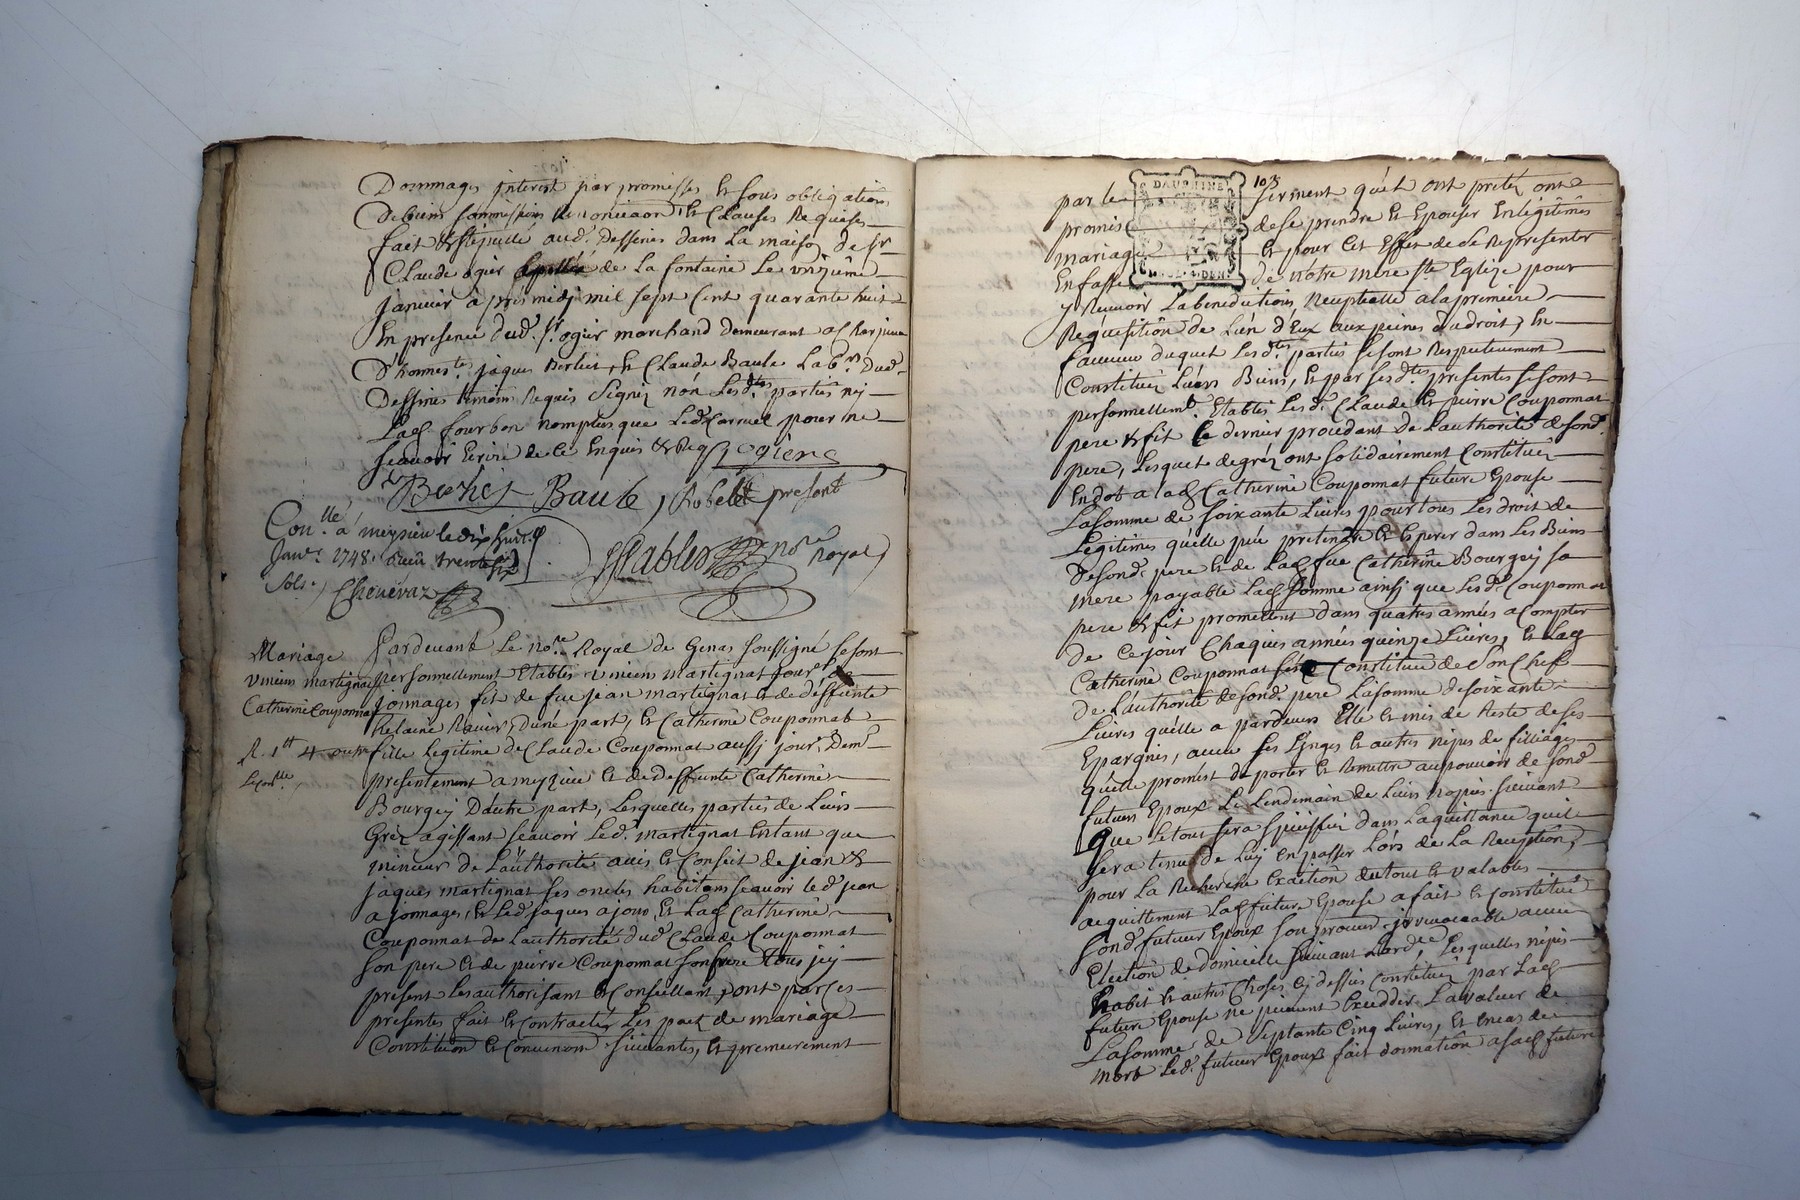 Dommages interest par promesses et sous obligations
De biens soumissions Renonciaons et Clauses Requises
fait et stipullé aud. Dessines dans La maison de Sr
Claude ogier de La fontaine Le onzieme
janvier après midy mil sept Cent quarante huit
En presence dud. Sr. ogier marchand Demeurant a
D'honnes te. jaques Berliet, et Claude Baule Lab.rs Dud.
Dessines temoins Requis Signez non Lesd. tes parties ny
fourbon non plus que Led. pour ne
sçavoir Ecrire de ce Enquis et Req. ogier
Berliet Baule, Robelet present
Con.lle á meyzieu le dix huit
Janv.r 1748. Reçu trente six
Sols. Chenevaz
nore Royal
Mariage
vincen martignat
Catherine Couponnat
R. 1 tt 4
Pardevant Le no.re Royal de Genas soussigné se sont
personnellement Etablis vincens martignat jour.er de
jonnages fils de feu jean martignat et de deffunte
helaine Ravier, D'une part, et Catherine Couponnat
fille legitime de Claude Couponnat aussy jour. Dem.t
presentement a meyzieu et de deffunte Catherine
Bourgey D'autre part, Lesquelles parties de Leurs
Gréz agissant sçavoir Led. martignat Entant que
mineur de L'authorité avis et Conseil de jean et
jaques martignat ses oncles habitans sçavoir led. jean
a jonnages, et Led. jaques a jons, et Lad. Catherine
Couponnat de L'authorité dud. Claude Couponnat
son pere et de pierre Couponnat son frere tous icy
present Les authorisant et Conseillant, ont par ces
presentes fait et contractéz Les pact de mariage
Constitution et Convenons suivantes, et premierement
103
DAUPHINE
par le serment qu'êt ont pretéz ont
promis de se prendre et Epouser En legitimes
mariage et pour cet Effet de se Representer
En fasse de nôtre mere ste Eglize pour
y Recevoir La benediction Nuptialle a la premiere
Requisition de L'un d'Eux aux peines du droit, En
faveur duquel Lesd. tes parties se sont Respectivement
Constituéz Leurs Biens, et par Ses d. tes presentes se sont
personnellem.t Etablis Lesd. Claude et pierre Couponnat
pere et fils le dernier procedant de L'authorité de sond.
pere, Lesquel de gréz ont solidairement Constituéz
En dot a lad. Catherine Couponnat future Epouse
La somme de soixante Livres pour tous Les droit de
Legitimes qu'elle peu pretendre et Esperer dans Les Biens
de sond. pere et de Lad. feue Catherine Bourgey sa
mere payable Lad. somme ainsy que Lesd. Couponnat
pere et fils promettent dans quatres années a Compter
de ce jour Chaques années quinze Livres, et Lad.
Catherine Couponnat se Constitue de Son Chef
de L'authorité de sond. pere La somme de soixante
Livres quelle a pardevers Elle et mis de Reste de ses
Epargnes, avec ses Linges et autres nipes de filliages
quelle promest de porter et Remettre au pouvoir de sond.
futeur Epoux Le Lendemain de Leurs nopces suivant
Que le tout sera spéciffié dans La quittance quil
sera tenue de Luy En passer Lors de La Reception,
pour La Recherche Exaction du tout et valables
acquittement Lad. future Epouse a fait et Constitué
sond. futeur Epoux Son procur. jrrevoccable avec
Election de domicille suivant Lord. Lesquelles nipes
habit et autres Choses Cy dessus Constituéz par Lad.
future Epouse ne peuvent Excedder La valeur de
La somme de Septante Cinq Livres, Et En cas de
mort Led. futeur Epoux fait donnation a sad. future